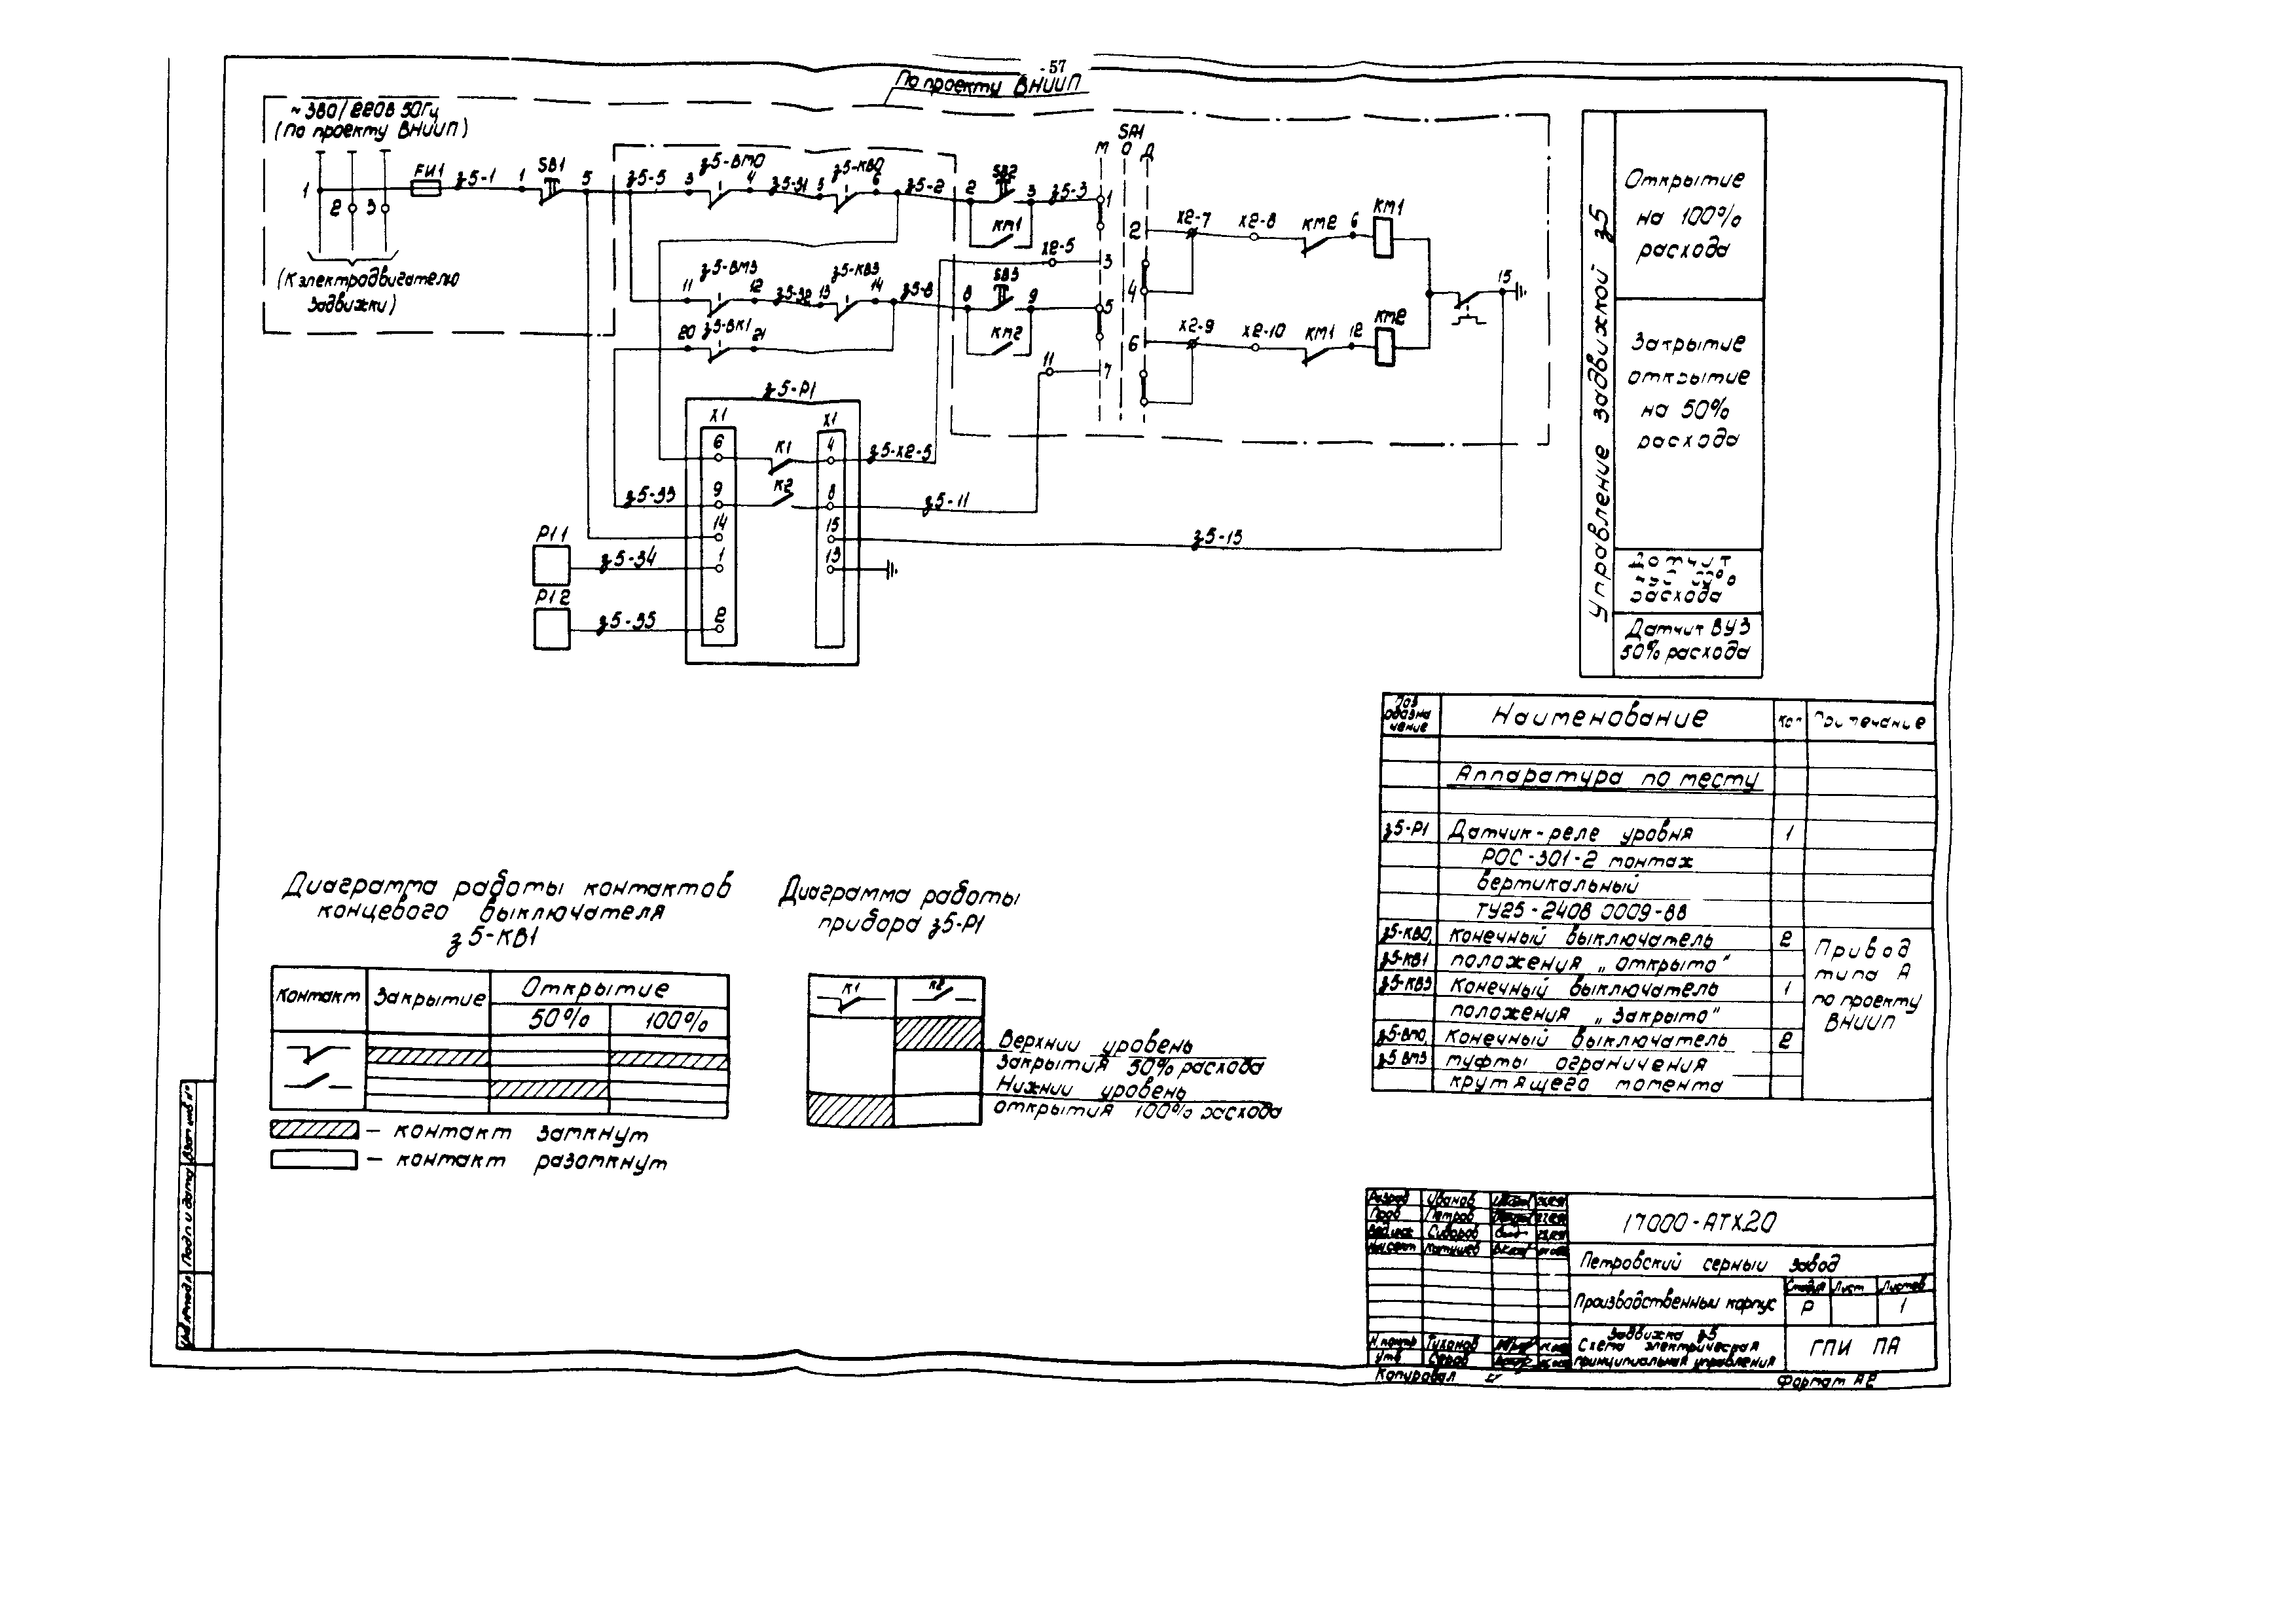 - 57
По проекту ВНИИП
~ 380/220В 50Гц
(По проекту ВНИИП)
1
2
3
FU1
з5-1
1
SB1
5
з5-5
3
з5-ВМО
4
з5-31
5
з5-КВО
6
з5-2
2
SB2
3
з5-3
КМ1
SA1
М О Д
1
2
3
4
5
6
7
Х2-5
Х2-7
Х2-8
КМ2
6
КМ1
(К электродвигателю
задвижки)
11
з5-ВМЗ
12
з5-32
13
з5-КВЗ
14
з5-8
8
SB3
9
КМ2
20
з5-ВК1
21
11
Х2-9
Х2-10
КМ1
12
КМ2
15
з5-Р1
Х1
Х1
6
К1
4
з5-Х2-5
з5-33
9
К2
8
з5-11
14
15
з5-15
Р11
з5-34
1
13
Р12
з5-35
2
Управление задвижкой з5
Открытие
на 100%
расхода
Закрытие
открытие
на 50%
расхода
Датчик
расхода
Датчик ВУЗ
50% расхода
Поз
обозна
чение
Наименование
Кол
Примечание
Аппаратура по месту
з5-Р1 Датчик-реле уровня 1
РОС-301-2 монтаж
вертикальный
ТУ25-2408 0009-88
з5-КВО, Конечный выключатель 2
з5-КВ1 положения „ открыто "
з5-КВЗ Конечный выключатель 1
положения „ Закрыто "
з5-ВМО, Конечный выключатель 2
з5-ВМЗ муфты ограничения
крутящего момента
Привод
типа А
по проекту
ВНИИП
Диаграмма работы контактов
концевого выключателя
з5-КВ1
Контакт
Закрытие
Открытие
50%
100%
– контакт замкнут
– контакт разомкнут
Диаграмма работы
прибора з5-Р1
К1
К2
Верхний уровень
Закрытия 50% расхода
Нижний уровень
открытия 100% расхода
Взам инв №
Подп и дата
Инв № подл
Разраб Иванов
Пров Петров
Вед инж Сидоров
Нач сект
Н контр Тихонов
Утв Серов
17000-АТХ.20
Петровский серный завод
Производственный корпус
Стадия Лист Листов
Р 1
Задвижка з5
Схема электрическая
принципиальная управления
ГПИ ПА
Копировал
Формат А2